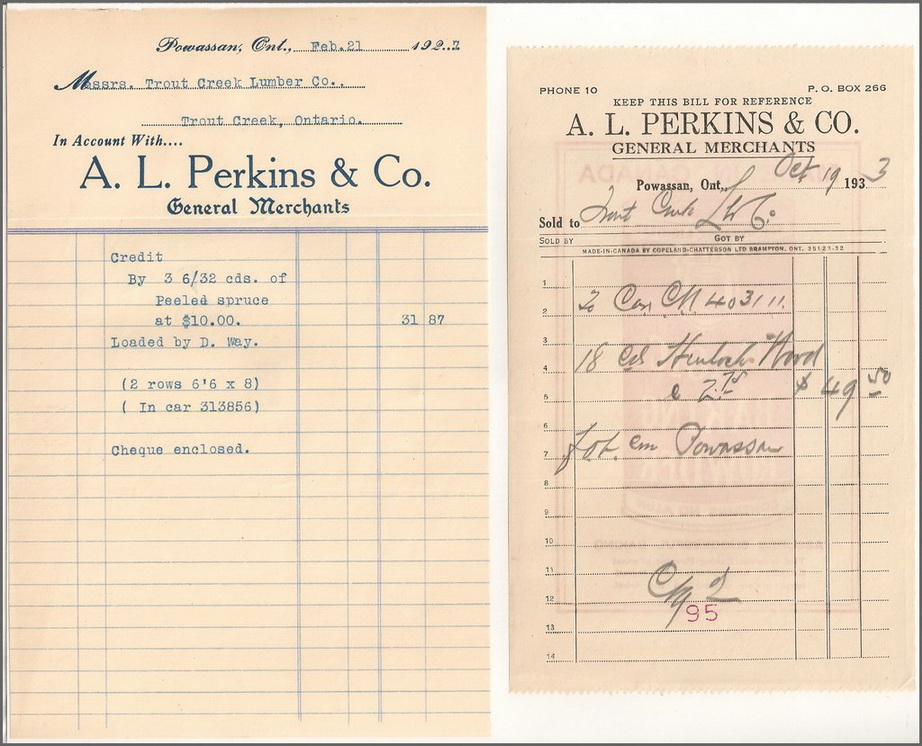 Powassan, Ont., Feb.21 1927
Messrs. Trout Creek Lumber Co.,
Trout Creek, Ontario.
In Account With....
A. L. Perkins & Co.
General Merchants
Credit
By 3 6/32 cds. of
Peeled spruce
at $10.00. 31 87
Loaded by D. Way.
(2 rows 6'6 x 8)
( In car 313856)
Cheque enclosed.
PHONE 10 P. O. BOX 266
KEEP THIS BILL FOR REFERENCE
A. L. PERKINS & CO.
GENERAL MERCHANTS
Powassan, Ont., Oct 19 1933
Sold to Trout Creek
SOLD BY GOT BY
MADE-IN-CANADA BY COPELAND-CHATTERSON LTD BRAMPTON, ONT.
1
2 Car 403111
3
4 18 Cds Hemlock Wood
5 $ 49 50
6
7 Powassan
8
9
10
11
12
95
13
14